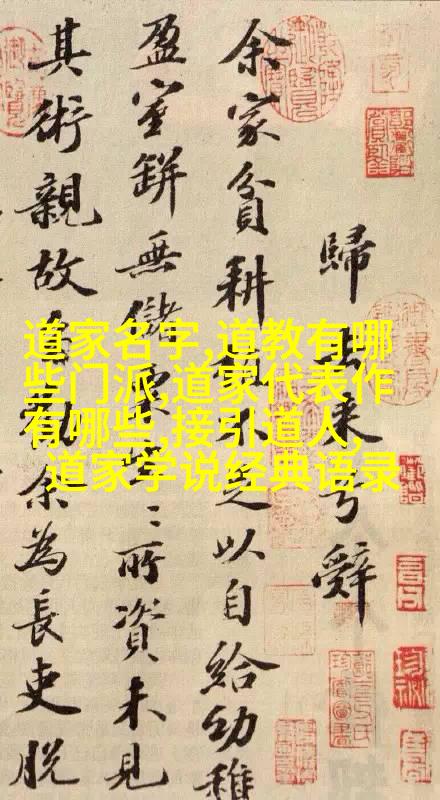 歸去来兮辭
余家貧耕植不足以自給幼稚
盈室缾無儲粟生〻所資未見
其術親故多勸余為長吏脱
道家名字,道教有哪
些门派,道家代表作
有哪些,接引道人,
道家学说经典语录